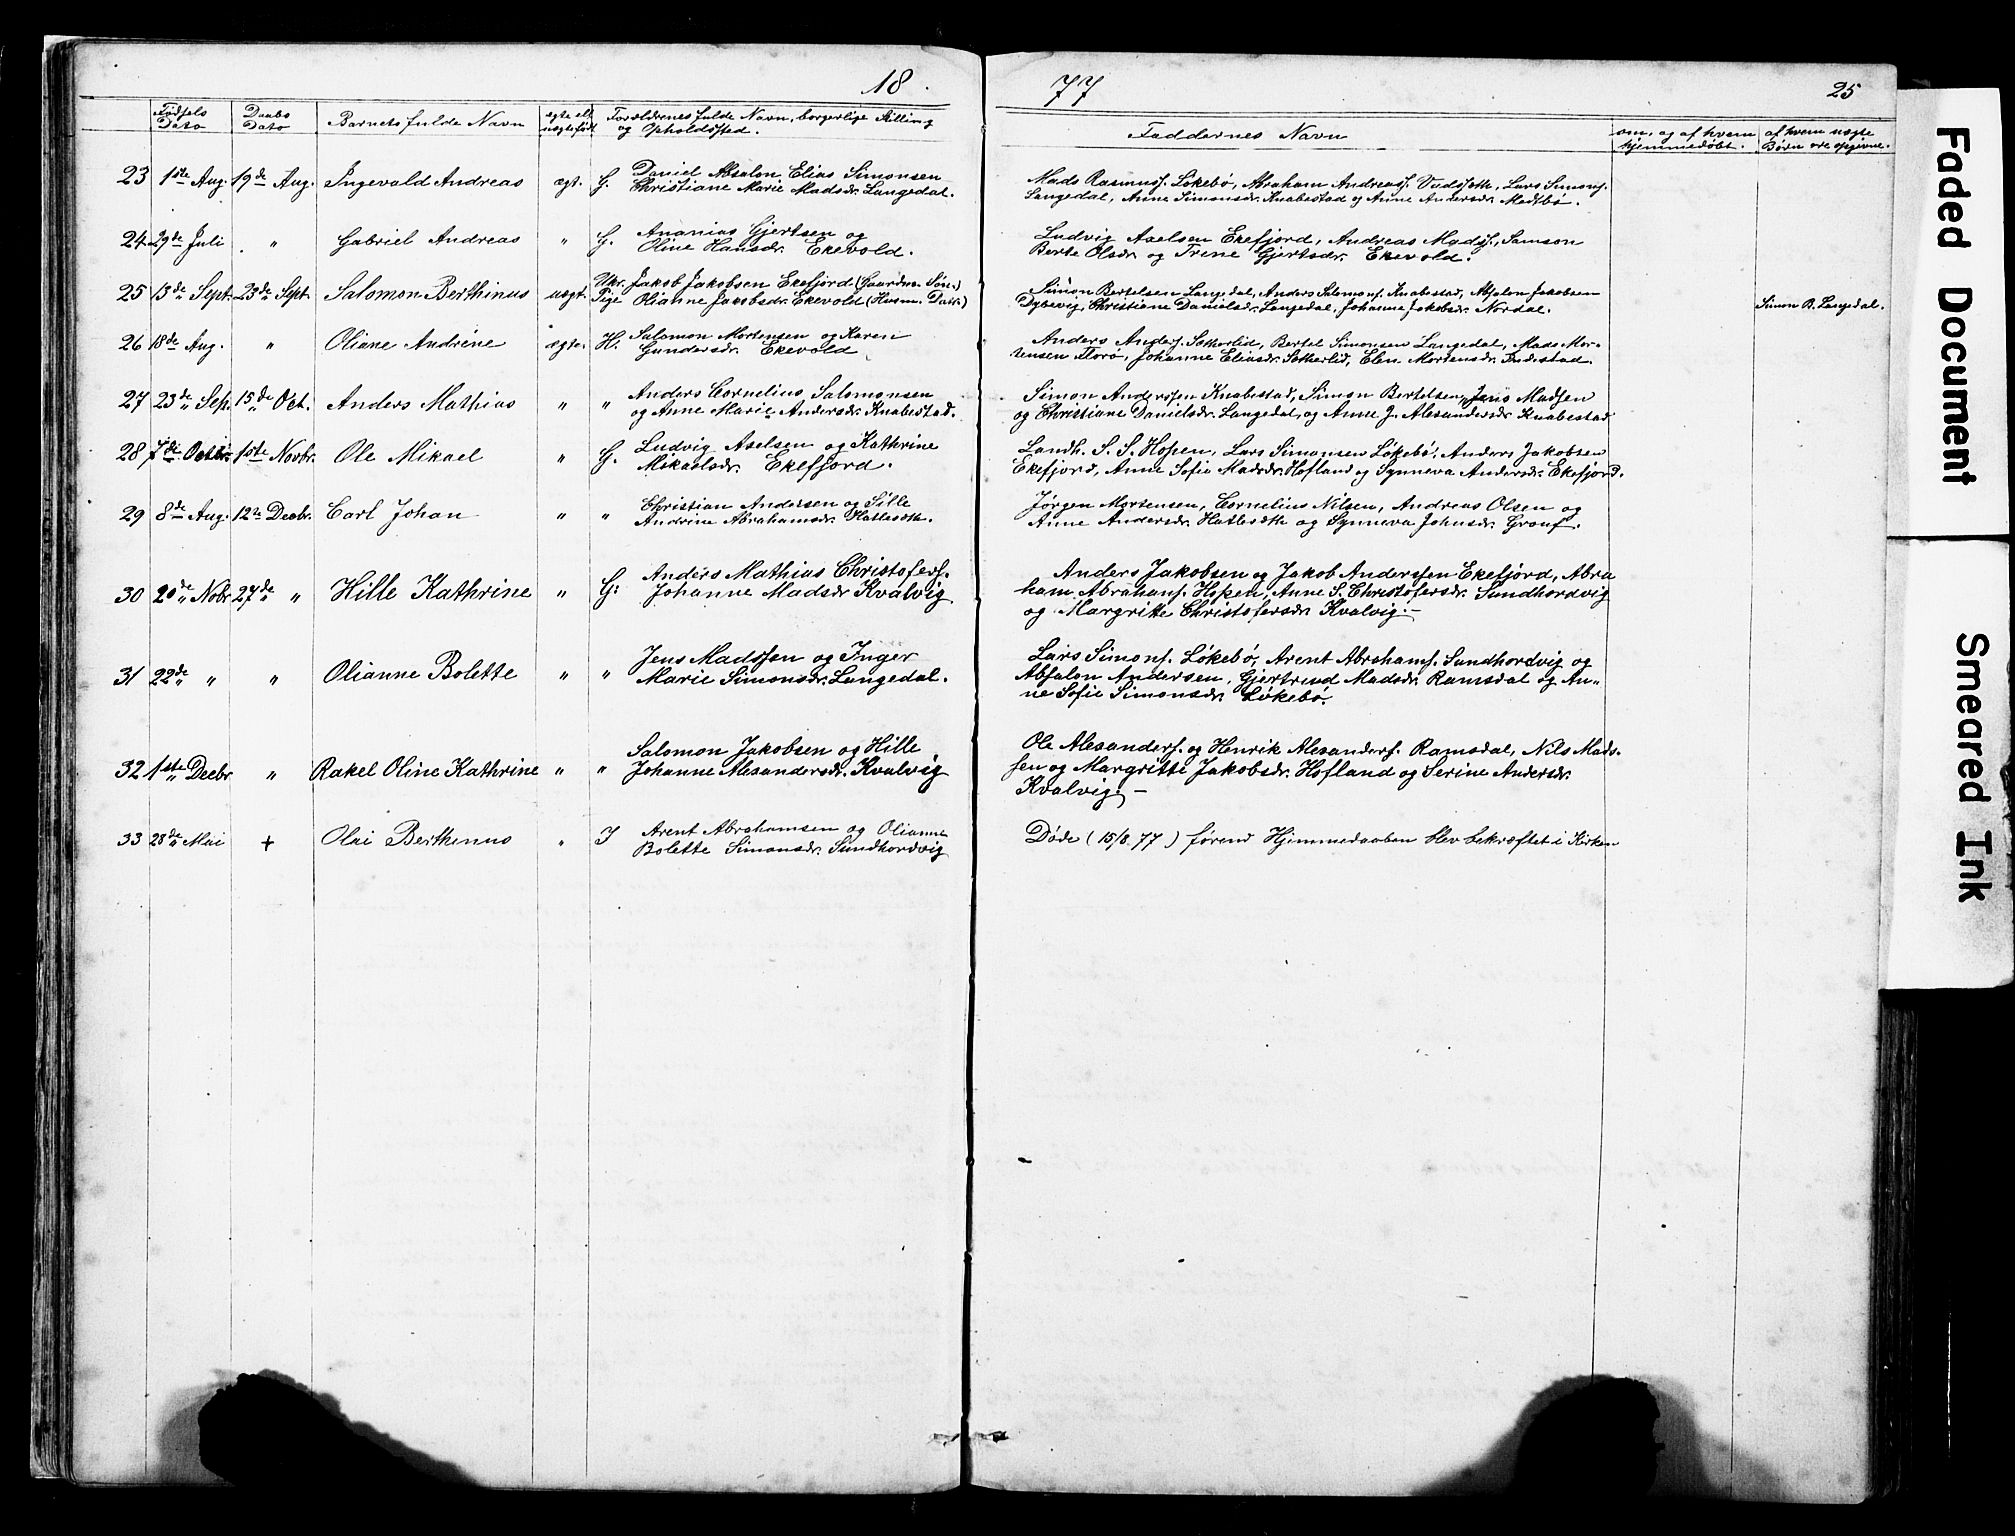 18.
77
25
Fødsels Dato
Daabs Dato
Barnets fulde Navn
ægte ell. uægtefødt
Forældrenes fulde Navn, borgerlige Stilling og Opholdssted.
Faddernes Navn
om, og af hvem hjemmedøbt.
af hvem uægte Børn ere opgivne.
23 1ste Aug. 19de Aug. Ingevald Andreas ægt. G. Daniel Absalon Elias Simonsen
Christiane Marie Madsdr. Langedal.
Mads Rasmuss. Løkebø, Abraham Andreass. Vadseth, Lars Simons.
Langedal, Anne Simonsdr. Knabestad og Anne Andersdr. Medtbø.
24 29de Juli " Gabriel Andreas " G. Ananias Gjertsen og
Oline Hansdr. Ekevold.
Ludvig Axelsen Ekefjord, Andreas Mads., Samson
Berte Olsdr og Trine Gjertsdr. Ekevold.
25 13de Sept. 23de Sept. Salomon Berthinus uægt. Ukr. Jakob Jakobsen Ekefjord (Gaardm. Søn.)
Pige Olianne Jakobsdr. Ekevold (Husm. Datr.)
Simon Bertelsen Langedal, Anders Salomons. Knabestad, Absalon Jakobsen
Dybevig, Christiane Danielsdr. Langedal, Johanne Jakobsdr Nordal.
Simon B. Langedal.
26 18de Aug. " Oliane Andrine ægte. H. Salomon Mortensen og Karen
Gundersdr. Ekevold
Anders Anders. Sætherlid, Bertel Simonsen Langedal, Mads Mor-
tensen Florø, Johanne Eliasdr. Sætherlid, Elen Mortensdr. Indestad.
27 23de Sep. 15de Oct. Anders Mathias " " Anders Cornelius Salomonsen
og Anne Marie Andersdr. Knabestad.
Simon Anderssen Knabestad, Simon Bertelsen, Jens Madsen
og Christiane Danielsdr. Langedal, og Anne J. Alexandersdr Knabestad
28 7de Octbr. 1ste Novbr. Ole Mikael " G. Ludvig Axelsen og Kathrine
Mikaelsdr. Ekefjord.
Landh. S. S. Hopen, Lars Simonsen Løkebø, Anders Jakobsen
Ekefjord, Anne Sofie Madsdr. Hofland og Synneva Andersdr. Ekefjord.
29 8de Aug. 12te Decbr. Carl Johan " " Christian Andersen og Sille
Andrine Abrahamsdr. Hatleseth.
Jørgen Mortensen, Cornelius Nilsen, Andreas Olsen og
Anne Andersdr. Hatleseth og Synneva Johnsdr. Grouf.
30 20de Nobr 27de " Hille Kathrine " G. Anders Mathias Christofers.
Johanne Madsdr Kvalvig
Anders Jakobsen og Jakob Anderssen Ekefjord, Abra
ham Abrahams. Hopen, Anne S. Christofersdr. Sundhordvig
og Margritte Christofersdr Kvalvig. —
31 22de " " Olianne Bolette " " Jens Madssen og Inger
Marie Simonsdr. Langedal.
Lars Simons. Løkebø, Arent Abrahams. Sundhordvig og
Absalon Andersen, Gjertrud Madsdr. Ramsdal og An-
ne Sofie Simonsdr. Løkebø.
32 1ste Decbr " Rakel Oline Kathrine " " Salomon Jakobsen og Hille
Johanne Alexandersdr. Kvalvig
Ole Alexanders. og Henrik Alexanders. Ramsdal, Nils Mads-
sen og Margritte Jakobsdr. Hofland og Serine Andersdr.
Kvalvig. —
33 28de Mai + Olai Berthinus " I Arent Abrahamsen og Olianne
Bolette Simonsdr. Sundhordvig
Døde (15/8. 77) førend Hjemmedaaben blev bekræftet i Kirken
Faded Document
Smeared Ink